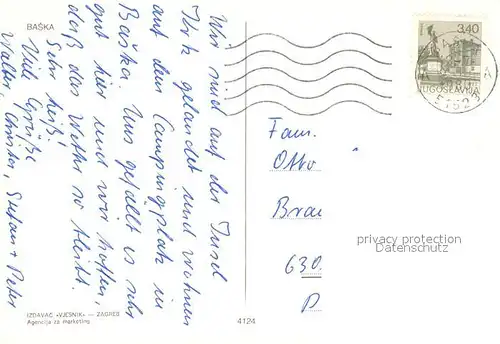 BAŠKA
Wir sind auf der Insel
Krk gelandet und wohnen
auf dem Campingplatz in
Baška. Uns gefällt es sehr
gut hier und wir hoffen,
daß das Wetter so bleibt.
Sehr heiß!
Viele Grüße
Walter, Christa, Stefan + Peter
IZDAVAČ »VJESNIK« — ZAGREB
Agencija za marketing
4124
3,40
JUGOSLAVIJA
Fam.
Otto
Brau
630
D
privacy protection
Datenschutz AK